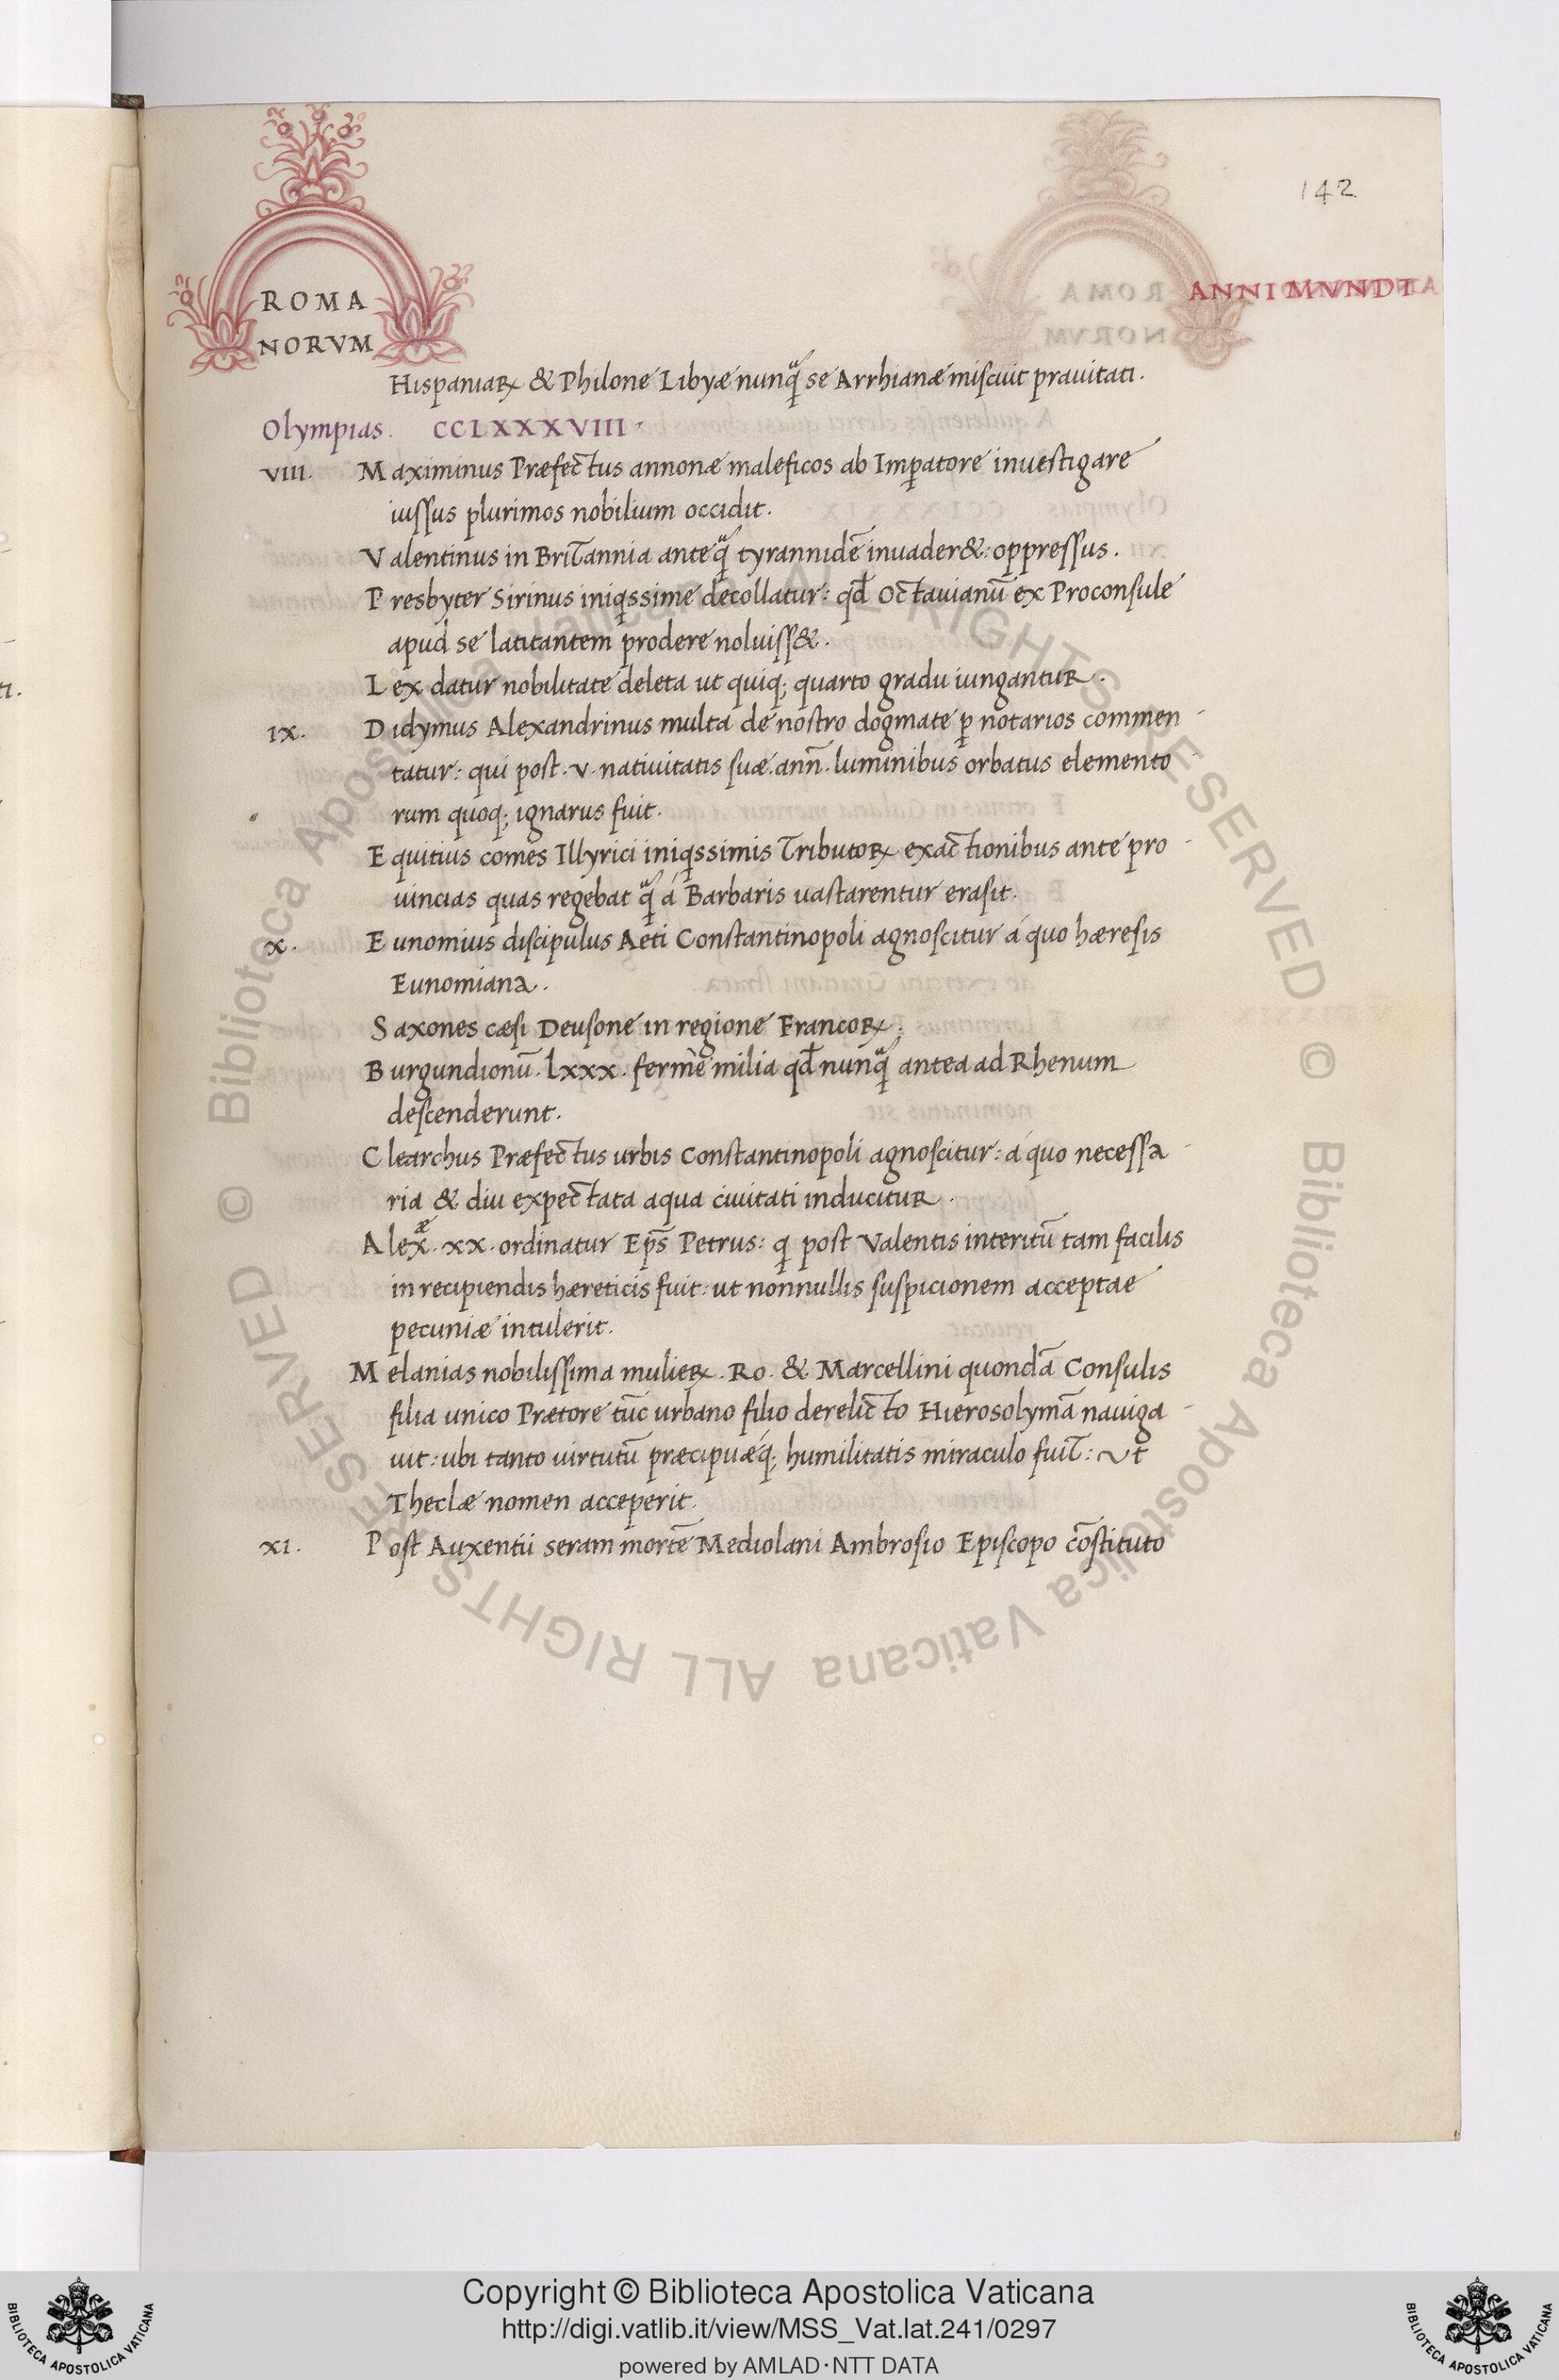 142
ROMA
NORVM
ANNI MVNDI
Hispaniaꝝ & Philone Libyæ nunq̃ se Arrhianæ miscuit prauitati.
Olympias. CCLXXXVIII
VIII. Maximinus Præfectus annonæ maleficos ab Imꝑatore inuestigare
iussus plurimos nobilium occidit.
Valentinus in Britannia anteq̃ tyrannidē inuader&: oppressus.
Presbyter Sirinus iniqssime decollatur: qđ Octauianū ex Proconsule
apud se latitantem prodere noluiss&.
Lex datur nobilitate deleta ut quiq; quarto gradu iungantur.
IX. Didymus Alexandrinus multa de nostro dogmate ꝑ notarios commen-
tatur: qui post .v. natiuitatis suæ .ann̄. luminibus orbatus elemento-
rum quoq; ignarus fuit.
Equitius comes Illyrici iniqssimis Tributoꝝ exactionibus ante pro-
uincias quas regebat q̃ á Barbaris uastarentur erasit.
X. Eunomius discipulus Aeti Constantinopoli agnoscitur á quo hæresis
Eunomiana.
Saxones cæsi Deusone in regione Francoꝝ.
Burgundionū .lxxx. fermè milia qđ nunq̃ antea ad Rhenum
descenderunt.
Clearchus Præfectus urbis Constantinopoli agnoscitur: á quo necessa-
ria & diu expectata aqua ciuitati inducitur.
Alexæ. xx. ordinatur Ep̄s Petrus: q post Valentis interitū tam facilis
in recipiendis hæreticis fuit: ut nonnullis suspicionem acceptae
pecuniæ intulerit.
Melanias nobilissima mulieꝝ. Ro. & Marcellini quondā Consulis
filia unico Prætore tūc urbano filio derelicto Hierosolymā nauiga-
uit: ubi tanto uirtutū præcipuæq́; humilitatis miraculo fuit: ut
Theclæ nomen acceperit.
XI. Post Auxentii seram mortē Mediolani Ambrosio Episcopo cōstituto
© Biblioteca Apostolica Vaticana ALL RIGHTS RESERVED © Biblioteca Apostolica Vaticana ALL RIGHTS RESERVED
Copyright © Biblioteca Apostolica Vaticana
http://digi.vatlib.it/view/MSS_Vat.lat.241/0297
powered by AMLAD·NTT DATA
BIBLIOTECA APOSTOLICA VATICANA
BIBLIOTECA APOSTOLICA VATICANA